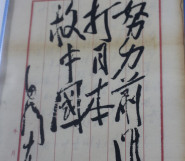 努力前
打日本
救中國